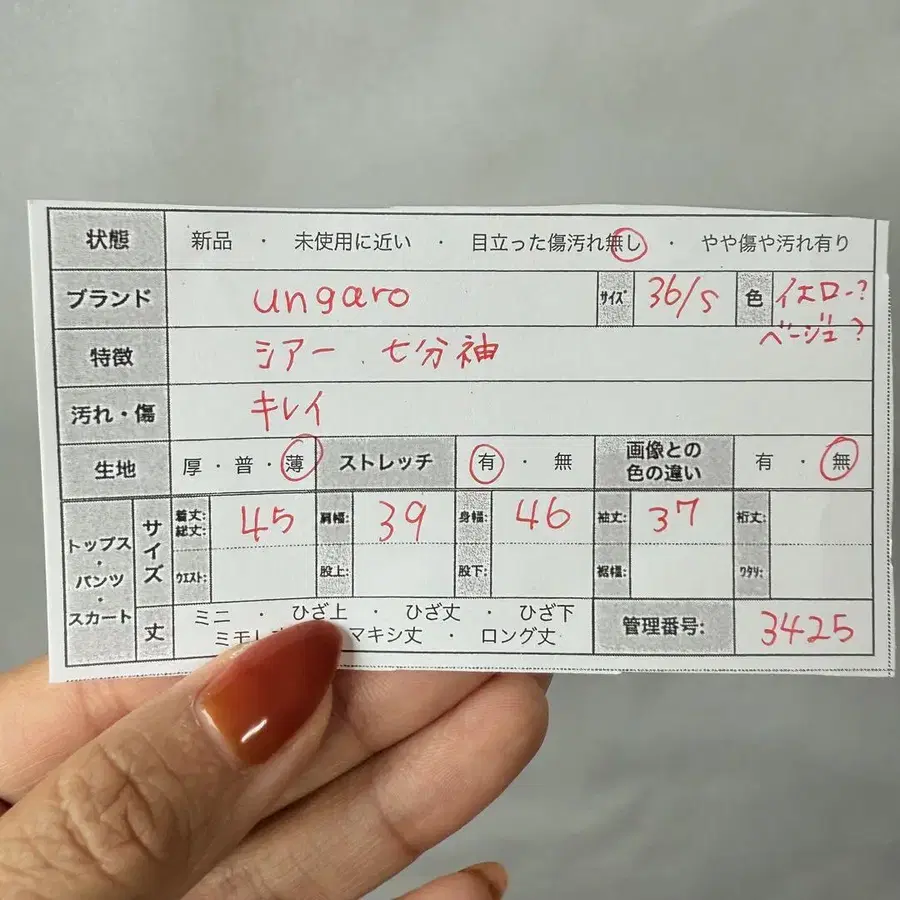 状態 新品 ・ 未使用に近い ・ 目立った傷汚れ無し ・ やや傷や汚れ有り
ブランド ungaro サイズ 36/S 色 イエロー?
ベージュ?
特徴 シアー 七分袖
汚れ・傷 キレイ
生地 厚・普・薄 ストレッチ 有 ・ 無 画像との色の違い 有 ・ 無
トップス・パンツ・スカート サイズ 着丈: 総丈: 45 肩幅: 39 身幅: 46 袖丈: 37 裄丈:
ウエスト: 股上: 股下: 裾幅: ワタリ:
丈 ミニ ・ ひざ上 ・ ひざ丈 ・ ひざ下
マキシ丈 ・ ロング丈
管理番号: 3425